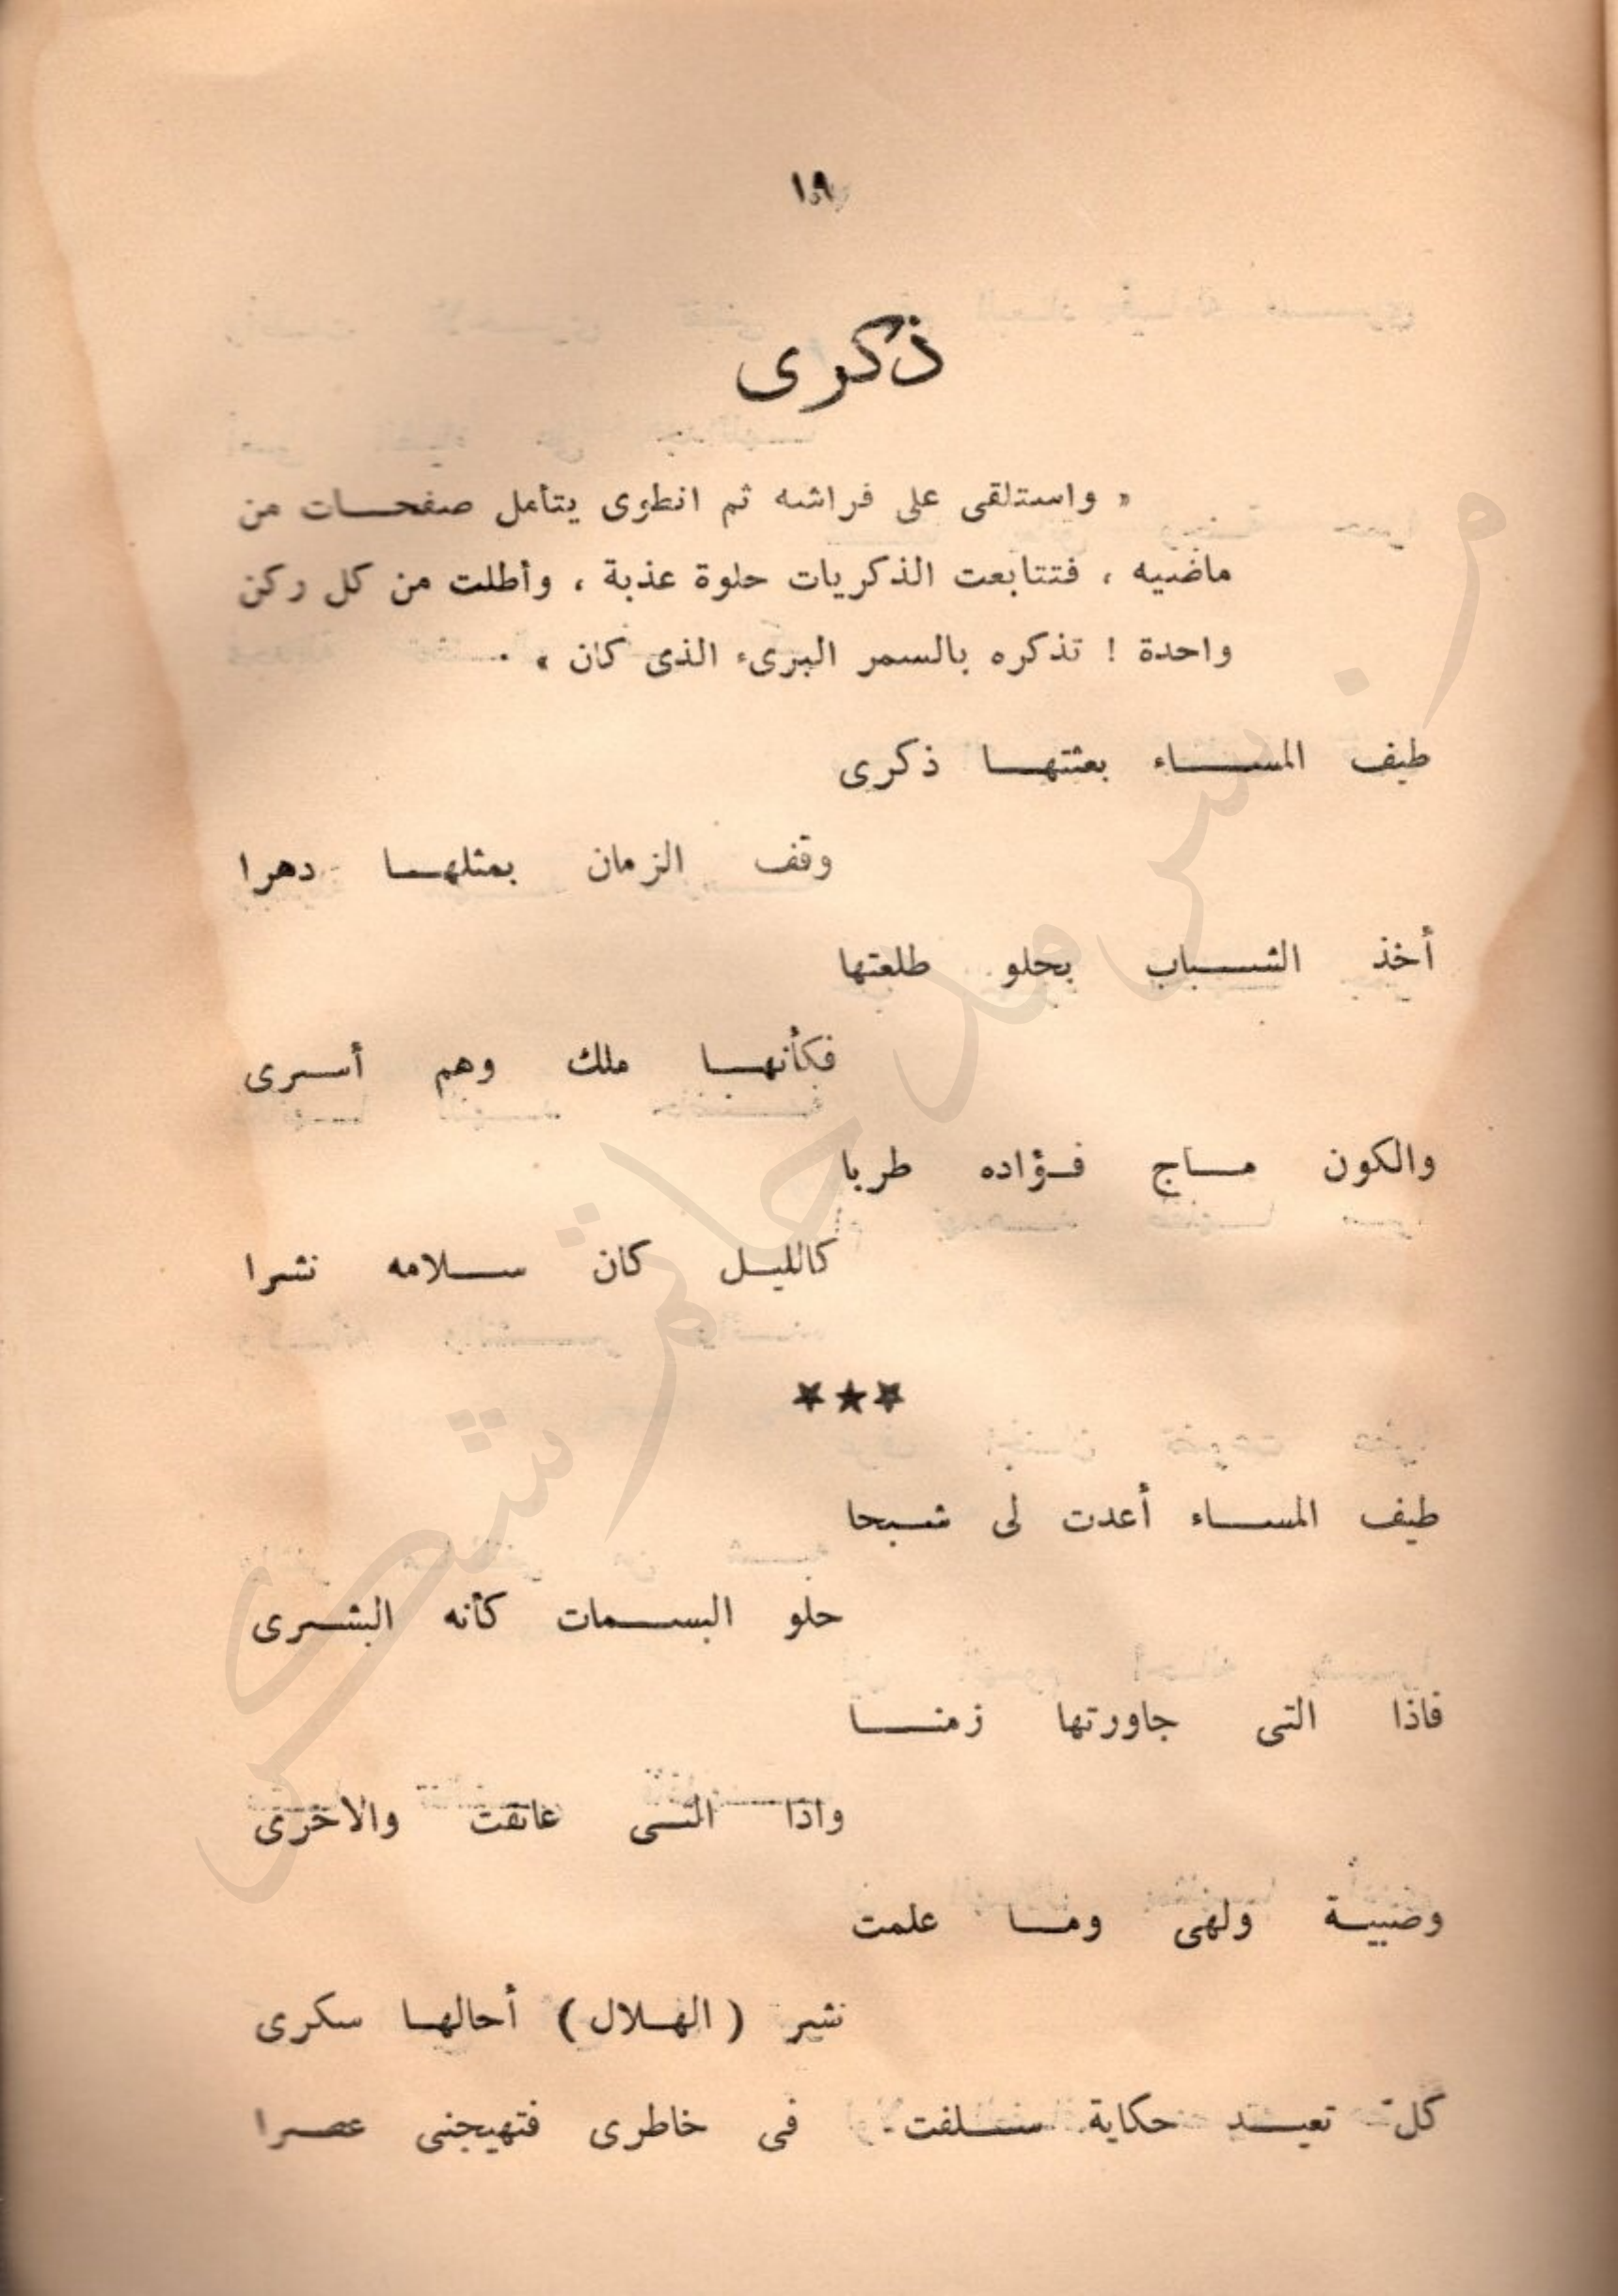 ١٩
ذكرى
« واستلقى على فراشه ثم انطوى يتأمل صفحات من
ماضيه ، فتتابعت الذكريات حلوة عذبة ، وأطلت من كل ركن
واحدة ! تذكره بالسمر البرىء الذى كان » .
طيف المساء بعثتها ذكرى
وقف الزمان بمثلها دهرا
أخذ الشباب بحلو طلعتها
فكأنها ملك وهم أسرى
والكون ماج فؤاده طربا
كالليل كان سلامه نشرا
★★★
طيف المساء أعدت لى شبحا
حلو البسمات كأنه البشرى
فاذا التى جاورتها زمنا
واذا التى عانقت والاخرى
وصبية ولهى وما علمت
نشر ( الهلال ) أحالها سكرى
كل تعيد حكاية سلفت فى خاطرى فتهيجنى عصرا